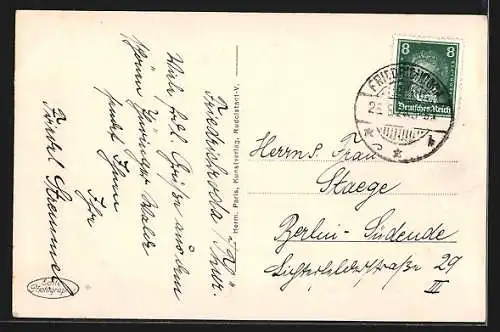 Friedrichroda / Thür.
Viele frdl. Grüße aus dem
schönen Thüringer Walde
sendet Ihnen
Ihr
Herm. Paris, Kunstverlag, Rudolstadt-V.
Echte
Photographie
8 8
Deutsches Reich
FRIEDRICHRODA
Herrn u. Frau
Staege
Berlin-Südende
Lichterfelderstraße 29
III